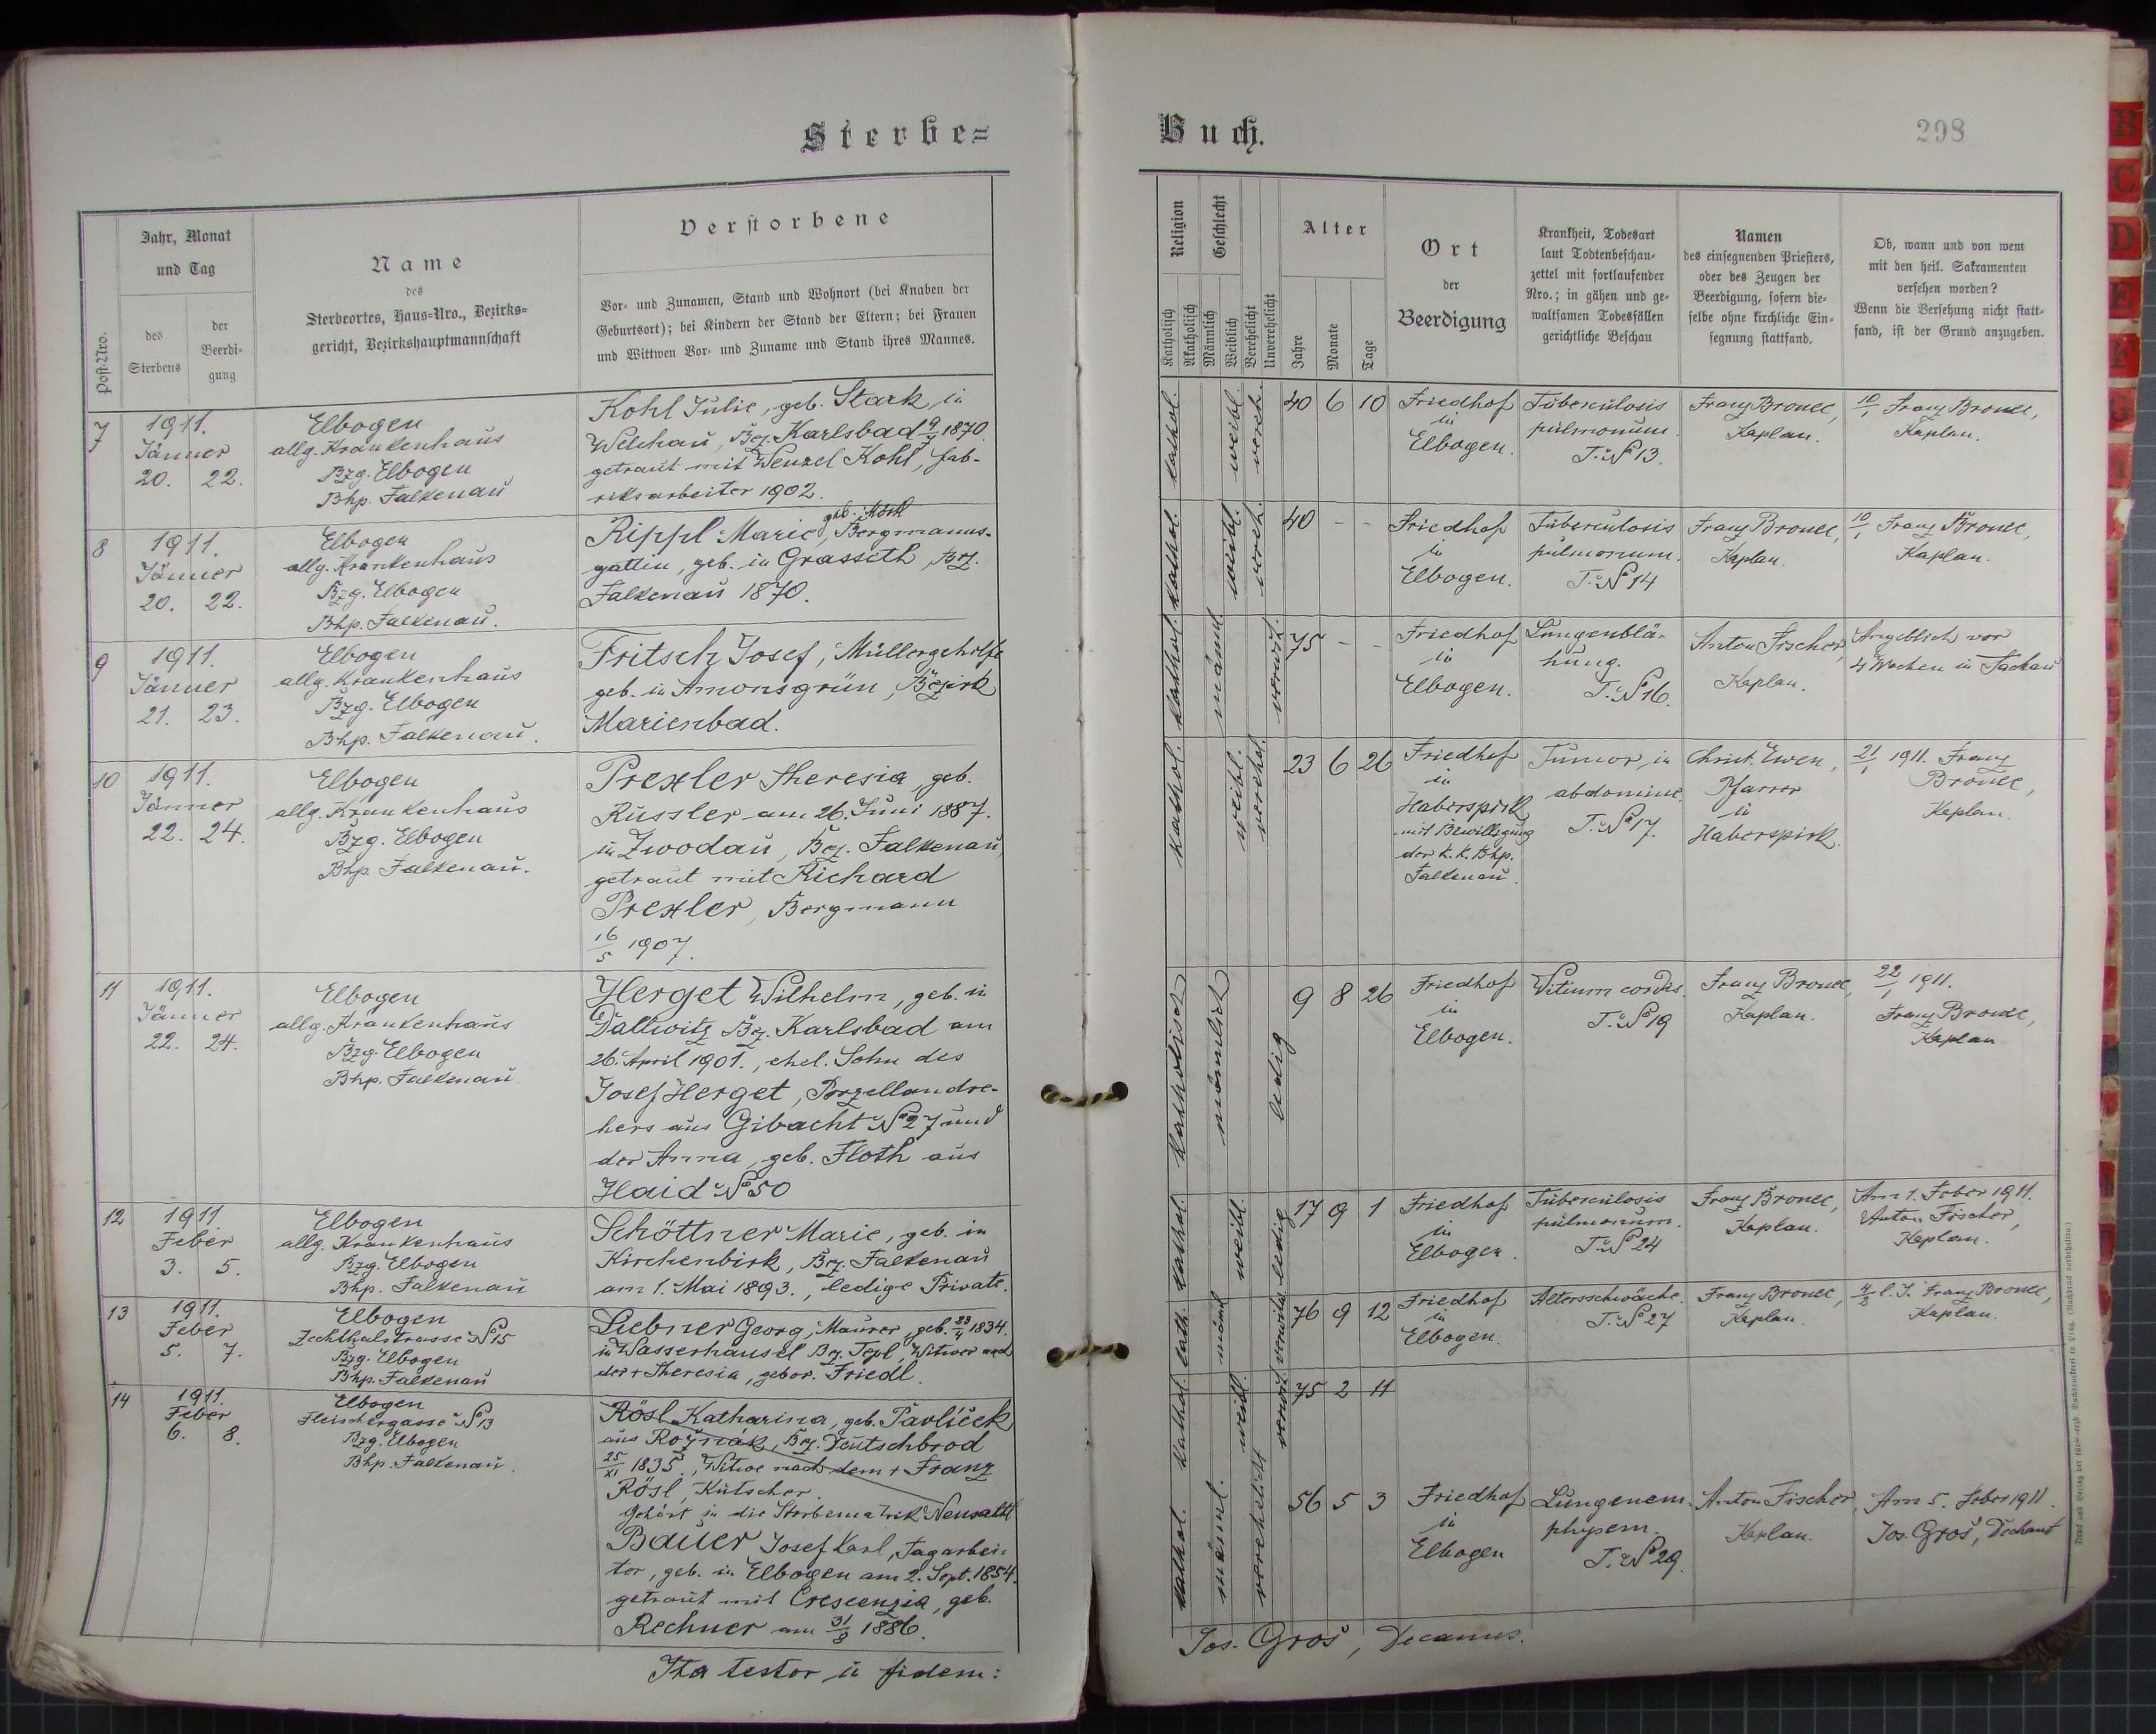 Sterbe=
Buch.
298
Post-Nro.
Jahr, Monat
und Tag
des
Sterbens
der
Beerdi-
gung
Name
des
Sterbeortes, Haus-Nro., Bezirks-
gericht, Bezirkshauptmannschaft
Verstorbene
Vor- und Zunamen, Stand und Wohnort (bei Knaben der
Geburtsort); bei Kindern der Stand der Eltern; bei Frauen
und Wittwen Vor- und Zuname und Stand ihres Mannes.
Religion
Katholisch
Akatholisch
Geschlecht
Männlich
Weiblich
Verehelicht
Unverehelicht
Alter
Jahre
Monate
Tage
Ort
der
Beerdigung
Krankheit, Todesart
laut Todtenbeschau-
zettel mit fortlaufender
Nro.; in gähen und ge-
waltsamen Todesfällen
gerichtliche Beschau
Namen
des einsegnenden Priesters,
oder des Zeugen der
Beerdigung, sofern die-
selbe ohne kirchliche Ein-
segnung stattfand.
Ob, wann und von wem
mit den heil. Sakramenten
versehen worden?
Wenn die Versehung nicht statt-
fand, ist der Grund anzugeben.
7
1911.
Jänner
20. 22.
Elbogen
allg. Krankenhaus
Bzg. Elbogen
Bhp. Falkenau
Kohl Julie, geb. Stark, in
Welchau, Bez. Karlsbad 9/7 1870.
getraut mit Wenzel Kohl, Fab-
riksarbeiter 1902.
kathol.
weibl.
vereh.
40 6 10
Friedhof
in
Elbogen.
Tuberculosis
pulmonum.
T. No 13.
Franz Bronec,
Kaplan.
10/1 Franz Bronec,
Kaplan.
8
1911.
Jänner
20. 22.
Elbogen
allg. Krankenhaus
Bzg. Elbogen
Bhp. Falkenau.
geb. Mörtl
Rippl Marie, Bergmanns-
gattin, geb. in Grasseth, Bez.
Falkenau 1870.
kathol.
weibl.
vereh.
40 - -
Friedhof
in
Elbogen.
Tuberculosis
pulmonum.
T. No 14
Franz Bronec,
Kaplan.
10/1 Franz Bronec,
Kaplan.
9
1911.
Jänner
21. 23.
Elbogen
allg. Krankenhaus
Bzg. Elbogen
Bhp. Falkenau.
Fritsch Josef, Müllergehilfe
geb. in Amonsgrün, Bezirk
Marienbad.
kathol.
männl.
verwit.
75 - -
Friedhof
in
Elbogen.
Lungenblä-
hung.
T. No 16.
Anton Fischer,
Kaplan.
Angeblich vor
4 Wochen in Tachau
10
1911.
Jänner
22. 24.
Elbogen
allg. Krankenhaus
Bzg. Elbogen
Bhp Falkenau.
Prexler Theresia, geb.
Russler am 26. Juni 1887.
in Zwodau, Bez. Falkenau,
getraut mit Richard
Prexler, Bergmann
16/5 1907.
kathol.
weibl.
verehel.
23 6 26
Friedhof
in
Haberspirk
mit Bewilligung
der k. k. Bhp.
Falkenau.
Tumor, in
abdomine.
T. No 17.
Christ. Ewen,
Pfarrer
in
Haberspirk.
21/1 1911. Franz
Bronec,
Kaplan.
11
1911.
Jänner
22. 24.
Elbogen
allg. Krankenhaus
Bzg. Elbogen
Bhp. Falkenau
Herget Wilhelm, geb. in
Dallwitz Bez. Karlsbad am
26. April 1901., ehel. Sohn des
Josef Herget, Porzellandre-
hers aus Gibacht No 27 und
der Anna, geb. Floth aus
Haid No 50
katholisch
männlich
ledig
9 8 26
Friedhof
in
Elbogen.
Vitium cordis.
T. No 19
Franz Bronec,
Kaplan.
22/1 1911.
Franz Bronec,
Kaplan
12
1911.
Feber
3. 5.
Elbogen
allg. Krankenhaus
Bzg. Elbogen
Bhp. Falkenau
Schöttner Marie, geb. in
Kirchenbirk, Bez. Falkenau
am 1. Mai 1893., ledige Private.
kathol.
weibl.
ledig
17 9 1
Friedhof
in
Elbogen.
Tuberculosis
pulmonum.
T. No 24
Franz Bronec,
Kaplan.
Am 1. Feber 1911.
Anton Fischer,
Kaplan.
13
1911.
Feber
5. 7.
Elbogen
Zechthalstrasse No 15
Bzg. Elbogen
Bhp. Falkenau
Liebner Georg, Maurer, geb. 23/4 1834.
in Wasserhäusel Bez. Tepl, Witwer nach
der + Theresia, gebor. Friedl.
kath.
männl
verwitw.
76 9 12
Friedhof
in
Elbogen.
Altersschwäche.
T. No 27
Franz Bronec,
Kaplan.
4/2 l. J. Franz Bronec,
Kaplan.
14
1911.
Feber
6. 8.
Elbogen
Fleischergasse No 13
Bzg. Elbogen
Bhp. Falkenau.
Rösl Katharina, geb. Pavlíček
aus Rozňák, Bez. Deutschbrod
25/XI 1835., Witwe nach dem + Franz
Rösl, Kutscher.
Gehört in die Sterbematrik Neusattl
kathol.
weibl.
verwit.
75 2 11
Bauer Josef Karl, Tagarbei-
ter, geb. in Elbogen am 2. Sept. 1854.
getraut mit Crescenzia, geb.
Rechner am 31/8 1886.
kathol.
männl.
verehelicht
56 5 3
Friedhof
in
Elbogen
Lungenem-
physem.
T. No 29.
Anton Fischer,
Kaplan.
Am 5. Feber 1911.
Jos. Groš, Dechant
Ita testor in fidem:
Jos. Groš, Decanus.
B
C
D
E
F